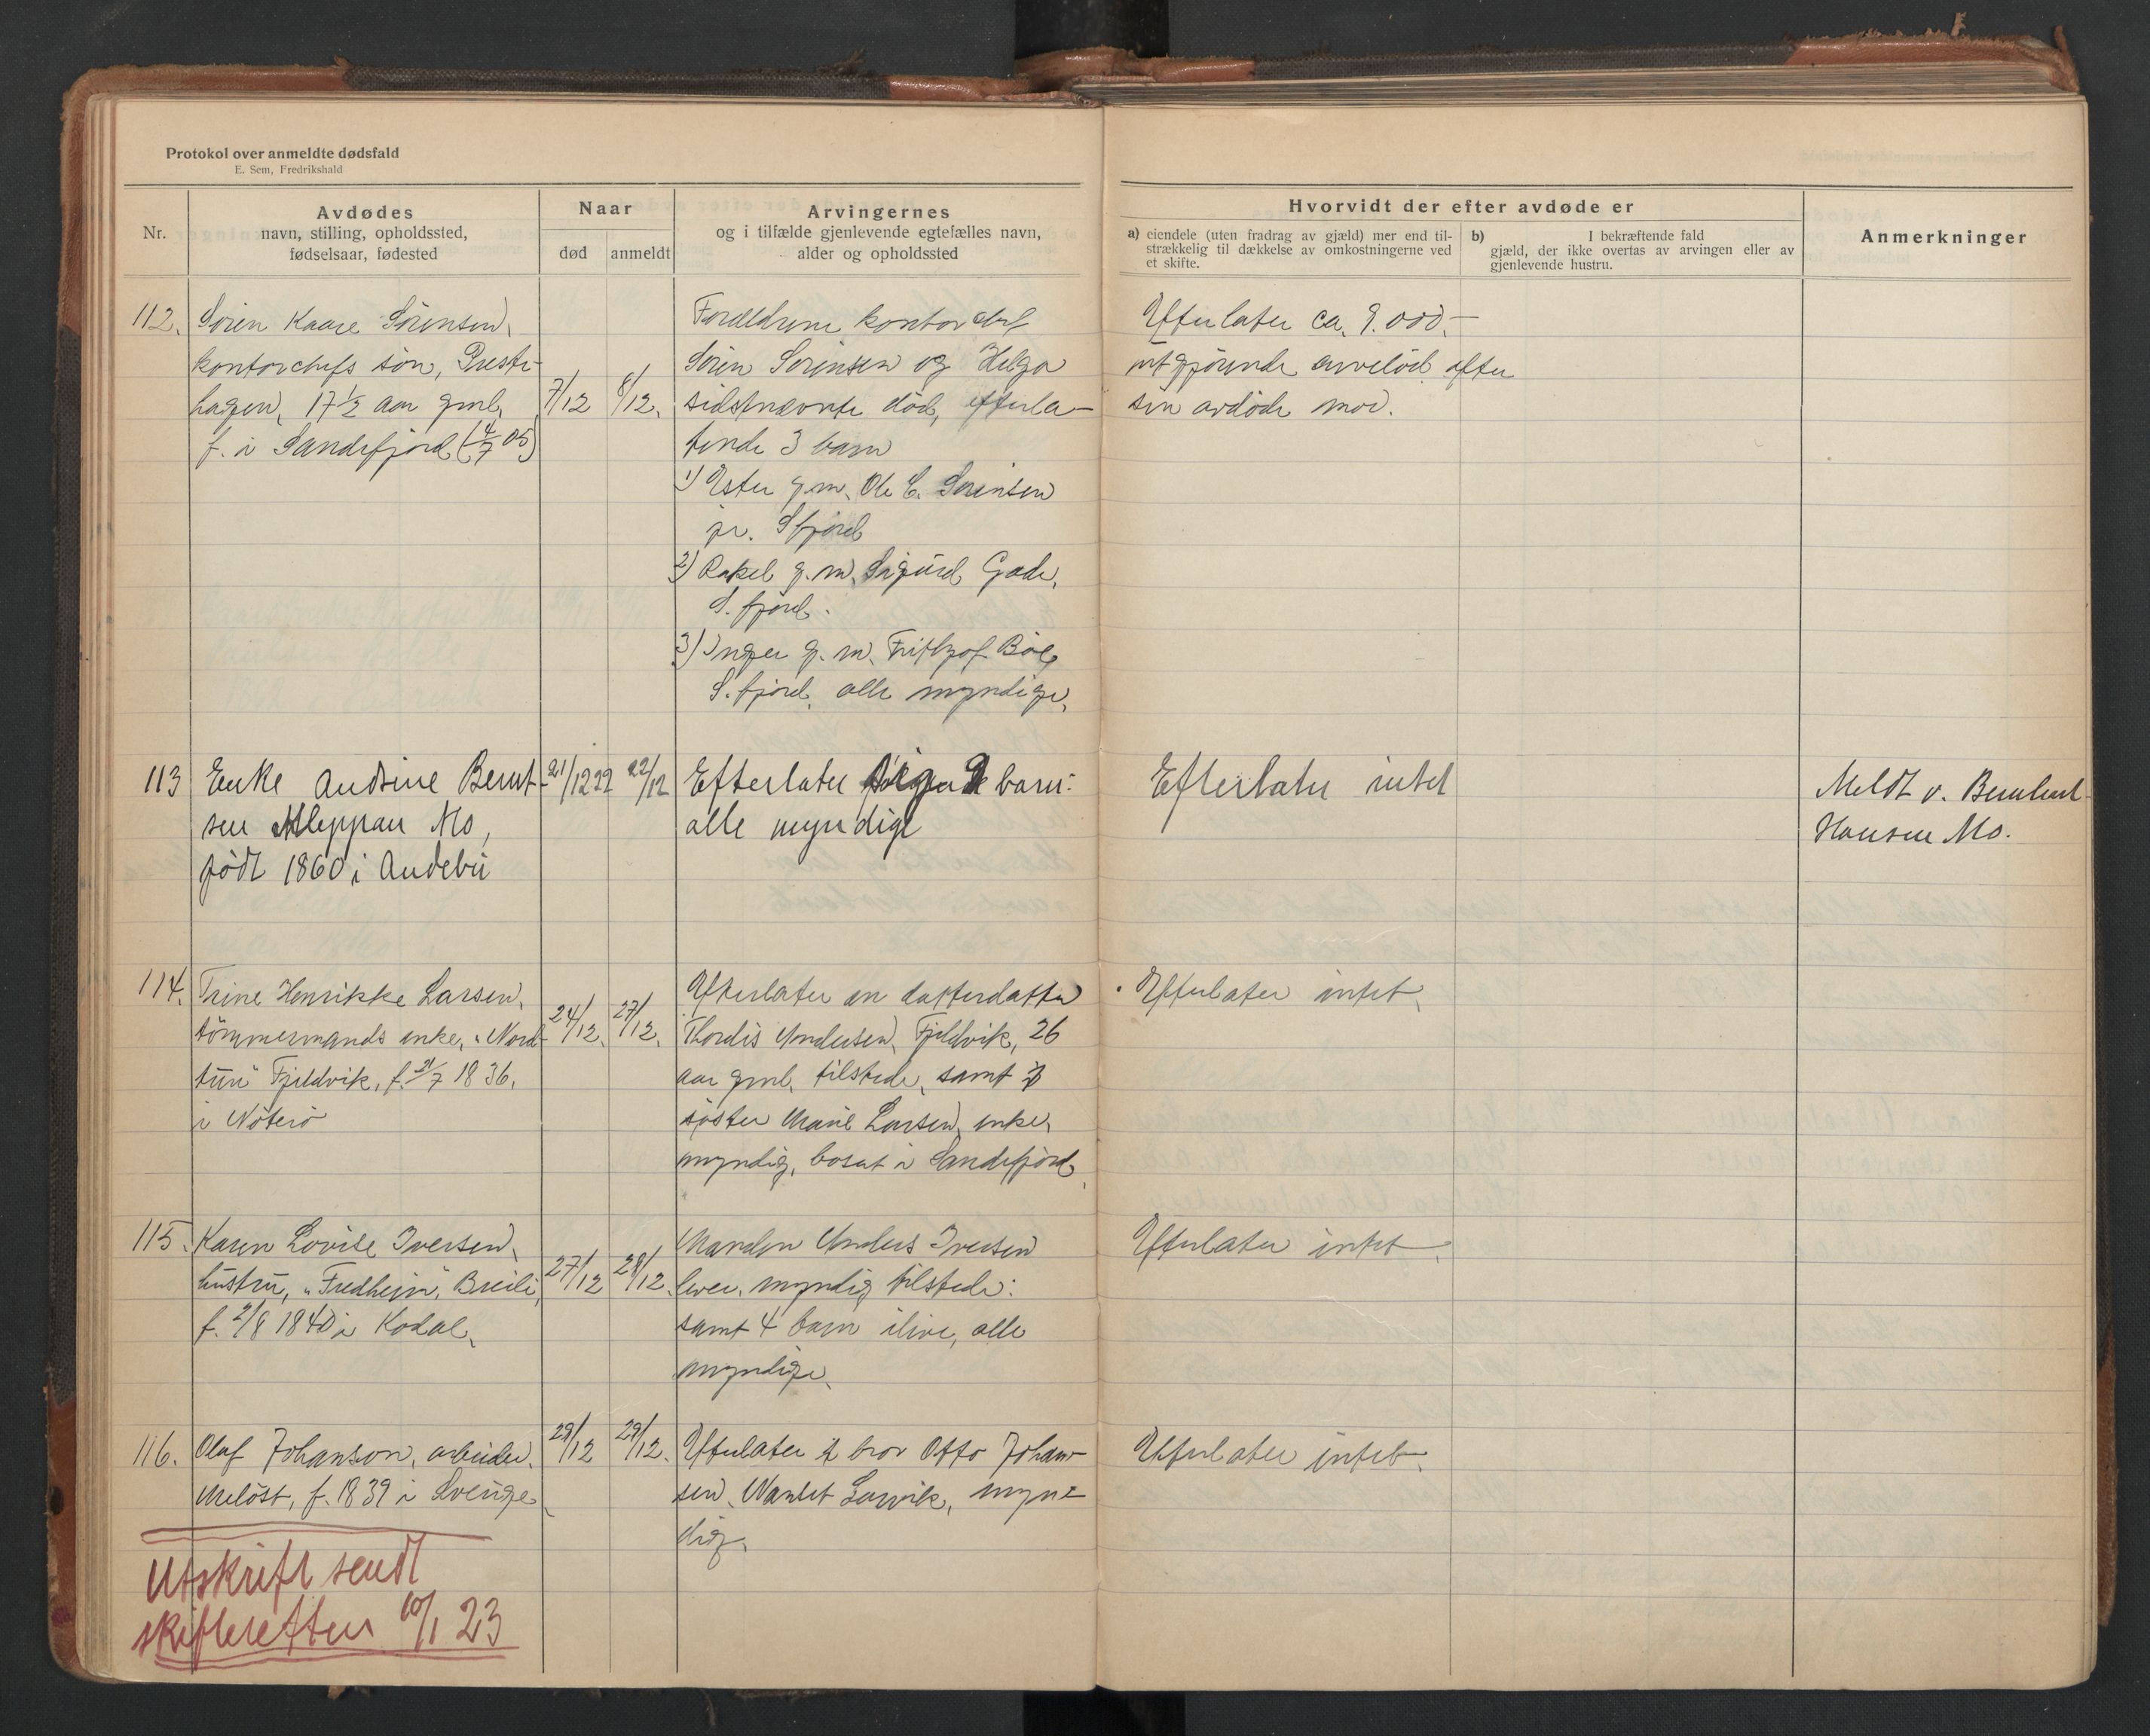 Protokol over anmeldte dødsfald
E. Sem, Fredrikshald
Nr.
Avdødes
navn, stilling, opholdssted,
fødselsaar, fødested
Naar
død
anmeldt
Arvingernes
og i tilfælde gjenlevende egtefælles navn,
alder og opholdssted
Hvorvidt der efter avdøde er
a) eiendele (uten fradrag av gjæld) mer end til-
strækkelig til dækkelse av omkostningerne ved
et skifte.
b) I bekræftende fald
gjæld, der ikke overtas av arvingen eller av
gjenlevende hustru.
Anmerkninger
112. Sören Kaare Sörensen,
kontorchefs sön, Preste-
hagen, 17½ aar gml,
f. i Sandefjord (4/7 05)
7/12
8/12.
Forældrene kontorchef
Sören Sörensen og Helga
sidstnævnte död, efterla-
tende 3 barn
1) Ester g.m. Ole C. Sörensen
jr. Sfjord
2) Rakel g.m. Sigurd Gade,
S.fjord.
3) Inger g.m. Frithjof Böe,
S.fjord, alle myndige,
Efterlater ca. 9.000.-
utgjörende arvelod efter
sin avdöde mor.
113 Enke Andrine Bernt-
sen Kleppan Mo,
født 1860 i Andebu
21/12 22
22/12
Efterlater barn:
alle myndige
Efterlater intet
Meldt v. Bernhard
Hansen Mo.
114. Trine Henrikke Larsen,
tömmermands enke, "Nord-
tun" Fjeldvik, f. 21/7 1836,
i Nöterö
24/12.
27/12.
Efterlater en datterdatter
Thordis Andersen, Fjeldvik, 26
aar gml, tilstede, samt
söster Marie Larsen, enke,
myndig, bosat i Sandefjord,
Efterlater intet.
115. Karen Lovise Iversen,
hustru, "Fredheim", Breili,
f. 2/8 1840 i Kodal,
27/12
28/12.
Manden Anders Iversen
lever, myndig tilstede:
samt 4 barn ilive, alle
myndige,
Efterlater intet.
116. Olaf Johanson, arbeider,
Meløst, f. 1839 i Sverige,
29/12
29/12.
Efterlater 1 bror Otto Johan-
sen, Nanset Larvik, myn-
dig,
Efterlater intet.
Utskrift sendt
skifteretten 10/1 23